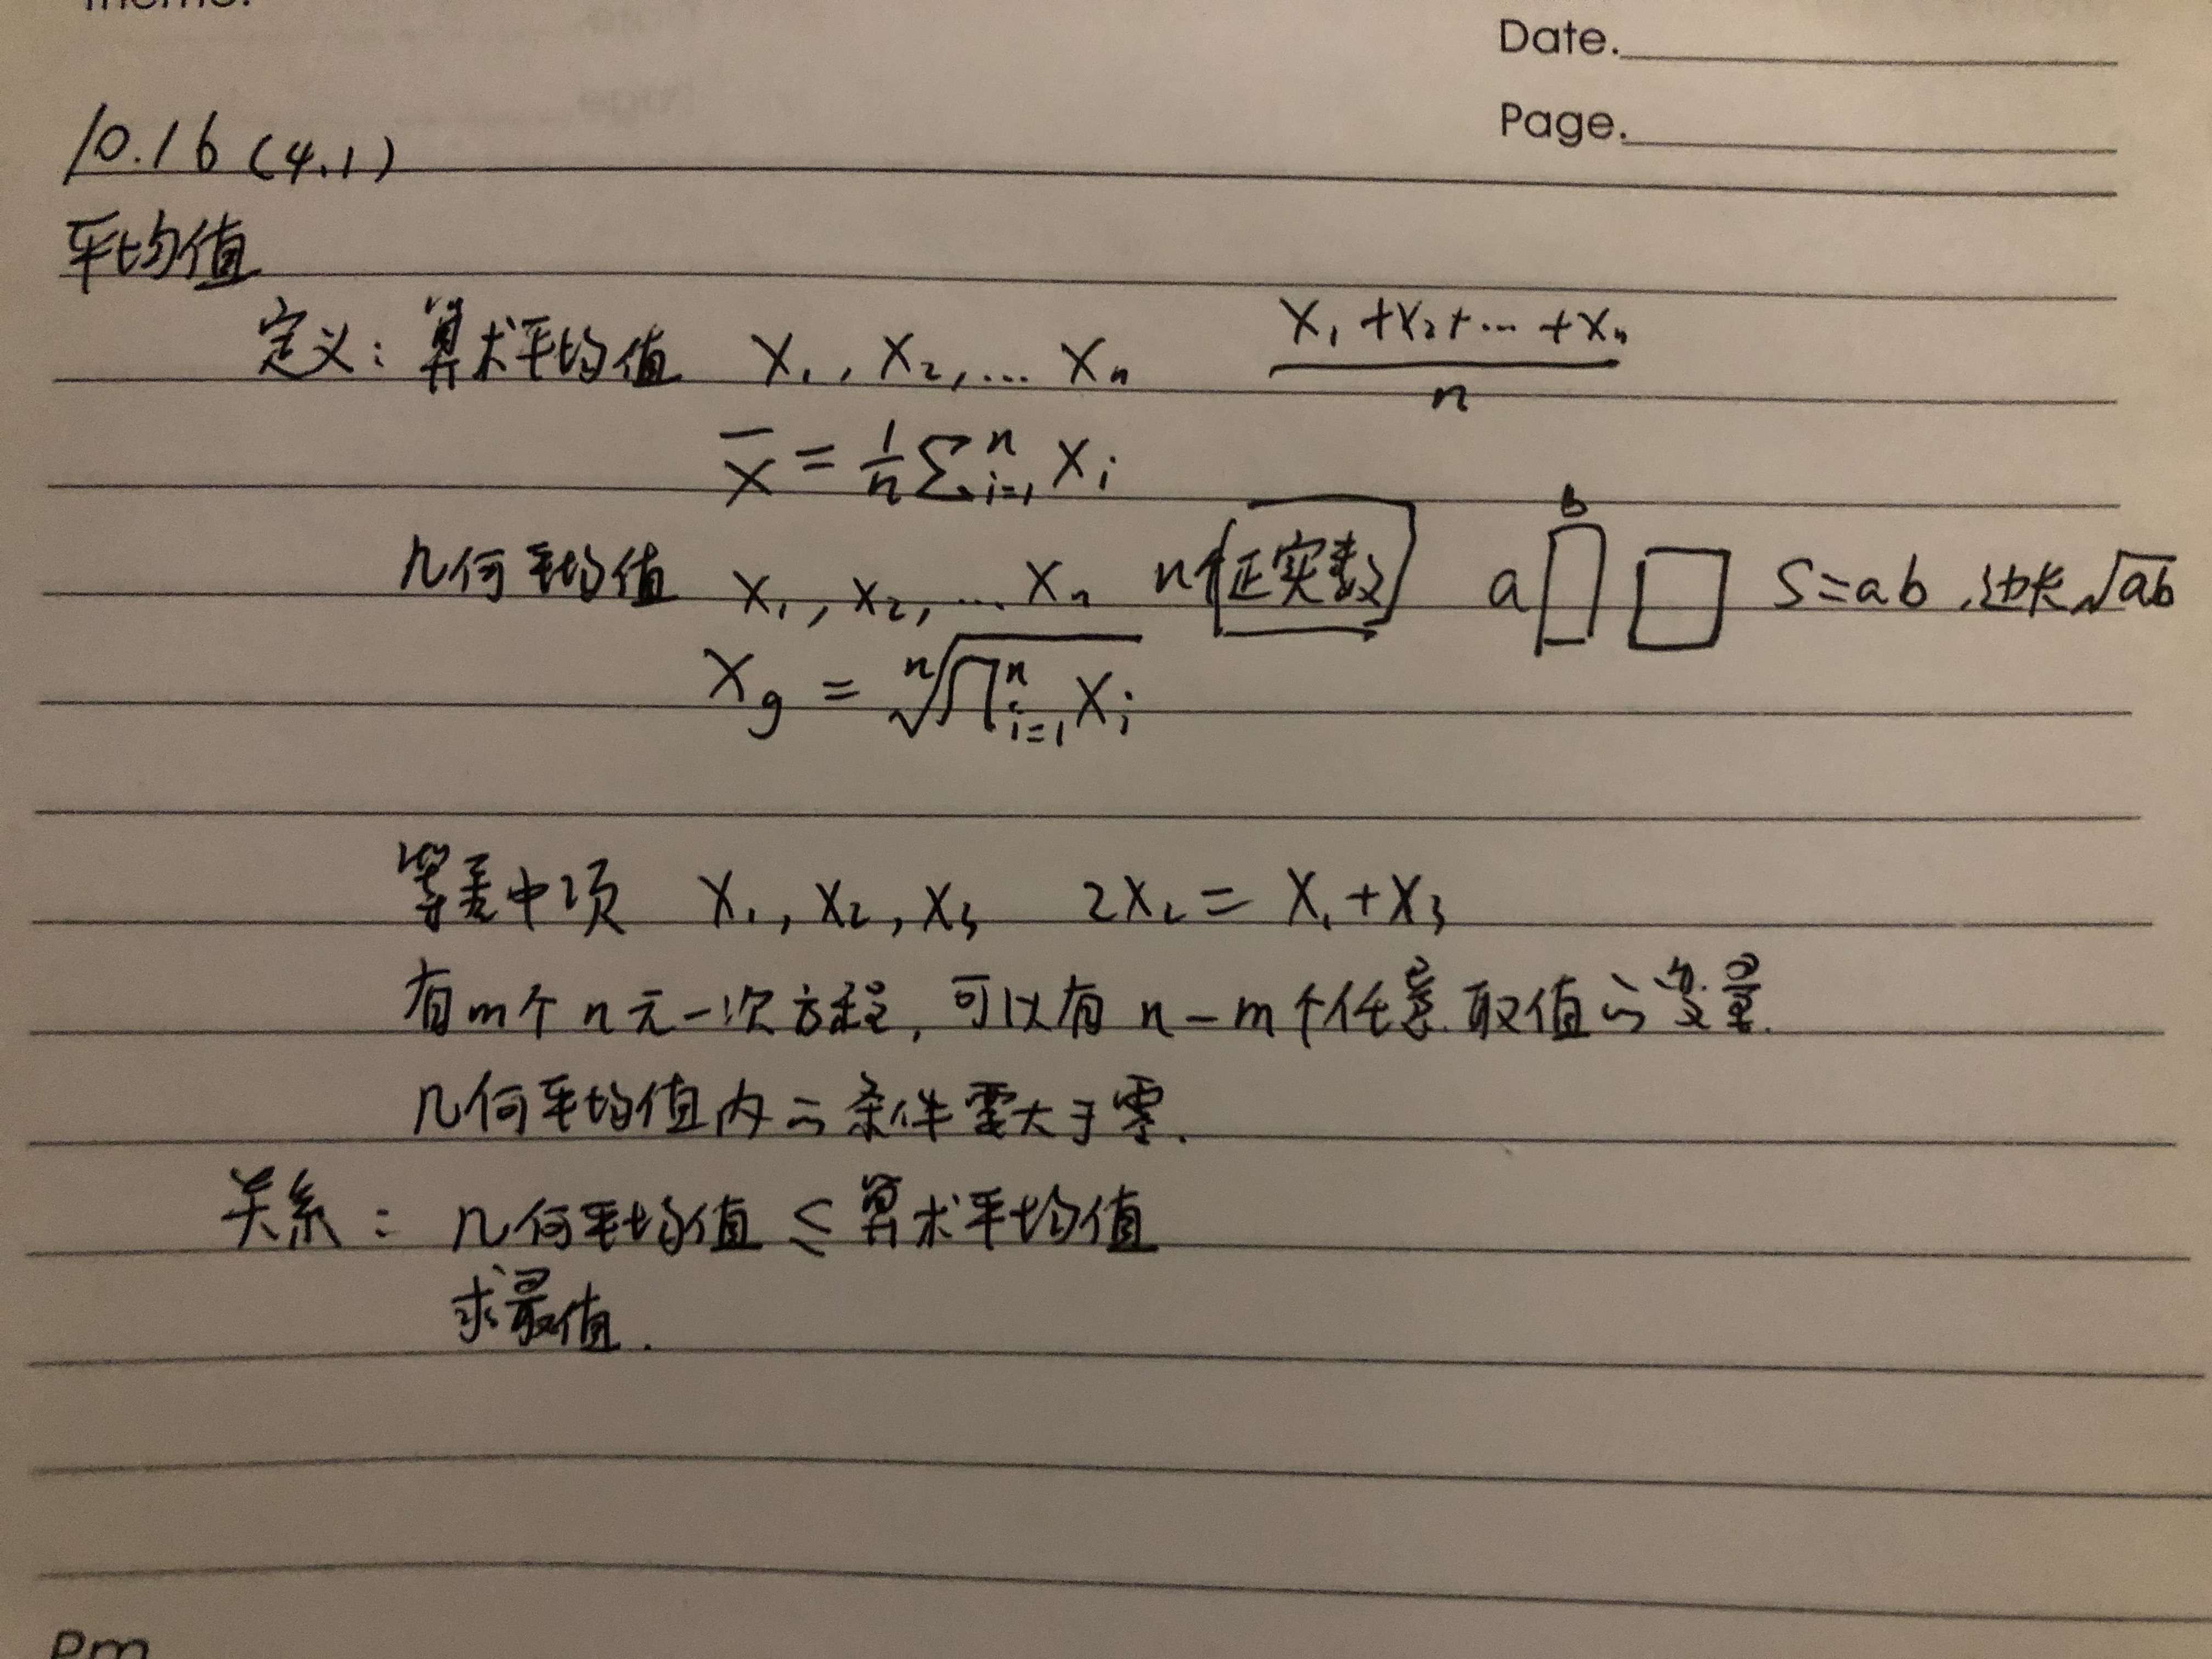 Date.
Page.
10.16 (4.1)
平均值
定义: 算术平均值 X₁, X₂, … Xₙ (X₁+X₂+…+Xₙ)/n
X̄ = 1/n ∑ⁿᵢ₌₁ Xᵢ
几何平均值 X₁, X₂, … Xₙ n个正实数 a b S=ab 边长√ab
X_g = ⁿ√∏ⁿᵢ₌₁ Xᵢ
等差中项 X₁, X₂, X₃ 2X₂ = X₁+X₃
有m个n元一次方程, 可以有 n-m个任意取值的变量.
几何平均值内的条件需大于零.
关系: 几何平均值 ≤ 算术平均值
求最值.